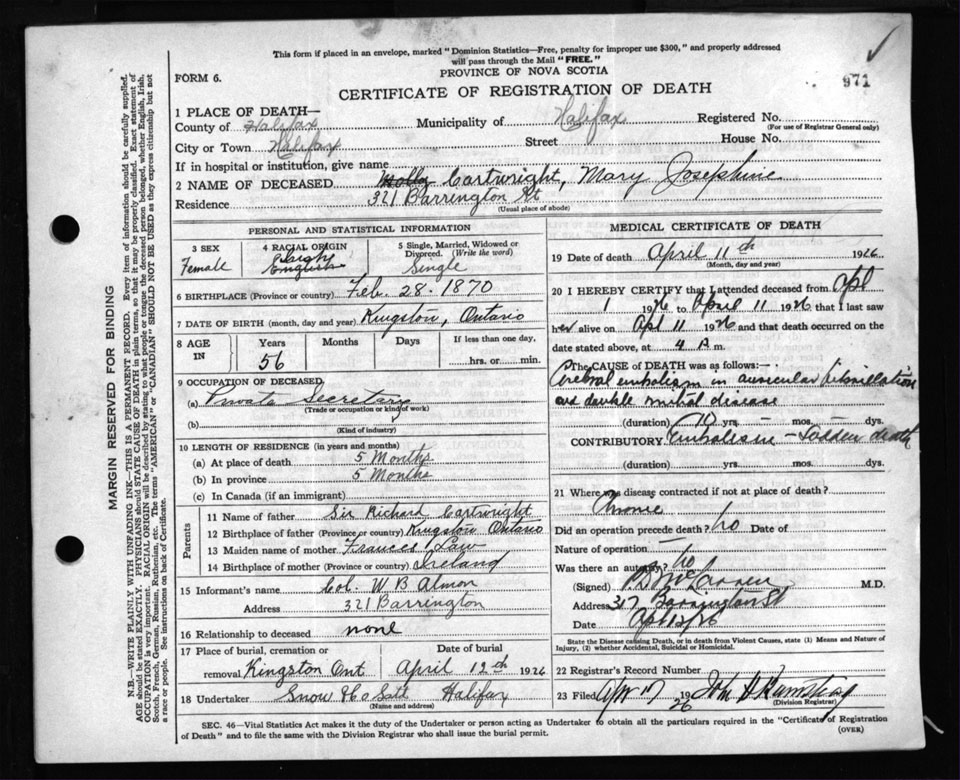 This form if placed in an envelope, marked "Dominion Statistics—Free, penalty for improper use $300," and properly addressed
will pass through the Mail "FREE."
971
FORM 6.
PROVINCE OF NOVA SCOTIA
CERTIFICATE OF REGISTRATION OF DEATH
1 PLACE OF DEATH—
County of Halifax Municipality of Halifax Registered No.
(For use of Registrar General only)
City or Town Halifax Street House No.
If in hospital or institution, give name
2 NAME OF DECEASED Cartwright, Mary Josephine
Residence 321 Barrington St
(Usual place of abode)
PERSONAL AND STATISTICAL INFORMATION
3 SEX Female
4 RACIAL ORIGIN English
5 Single, Married, Widowed or Divorced. (Write the word) Single
6 BIRTHPLACE (Province or country) Feb. 28. 1870
7 DATE OF BIRTH (month, day and year) Kingston, Ontario
8 AGE IN Years Months Days If less than one day,
56 hrs. or min.
9 OCCUPATION OF DECEASED
(a) Private Secretary
(Trade or occupation or kind of work)
(b)
(Kind of industry)
10 LENGTH OF RESIDENCE (in years and months)
(a) At place of death 5 Months
(b) In province 5 Months
(c) In Canada (if an immigrant)
Parents
11 Name of father Sir Richard Cartwright
12 Birthplace of father (Province or country) Kingston Ontario
13 Maiden name of mother Frances Law
14 Birthplace of mother (Province or country) Ireland
15 Informant's name Col. W B Almon
Address 321 Barrington
16 Relationship to deceased none
17 Place of burial, cremation or removal Date of burial
Kingston Ont April 12th 1926
18 Undertaker Snow & Co Halifax
(Name and address)
MEDICAL CERTIFICATE OF DEATH
19 Date of death April 11th 1926
(Month, day and year)
20 I HEREBY CERTIFY that I attended deceased from Apl
1 1926 to April 11 1926 that I last saw
her alive on Apl 11 1926 and that death occurred on the
date stated above, at 4 A m.
The CAUSE OF DEATH was as follows:
Cerebral embolism in auricular fibrillation
and double mitral disease
(duration) 10 yrs. mos. dys.
CONTRIBUTORY Embolism — Sudden death
(duration) yrs. mos. dys.
21 Where was disease contracted if not at place of death?
Did an operation precede death? no Date of
Nature of operation —
Was there an autopsy? no
(Signed) M.D.
Address Barrington St
Date
State the Disease causing Death, or in death from Violent Causes, state (1) Means and Nature of
Injury, (2) whether Accidental, Suicidal or Homicidal.
22 Registrar's Record Number
23 Filed Apr 17 1926
(Division Registrar)
SEC. 46—Vital Statistics Act makes it the duty of the Undertaker or person acting as Undertaker to obtain all the particulars required in the "Certificate of Registration
of Death" and to file the same with the Division Registrar who shall issue the burial permit.
(OVER)
MARGIN RESERVED FOR BINDING
N.B.—WRITE PLAINLY WITH UNFADING INK—THIS IS A PERMANENT RECORD. Every item of information should be carefully supplied.
AGE should be stated EXACTLY. PHYSICIANS should STATE CAUSE OF DEATH in plain terms, so that it may be properly classified. Exact statement of
OCCUPATION is very important. RACIAL ORIGIN will be described by stating to what people or tongue the deceased person belonged, whether English, Irish,
Scotch, French, German, Russian, Ruthenian, etc. The terms "AMERICAN" or "CANADIAN" SHOULD NOT BE USED as they express citizenship but not
a race or people. See instructions on back of Certificate.